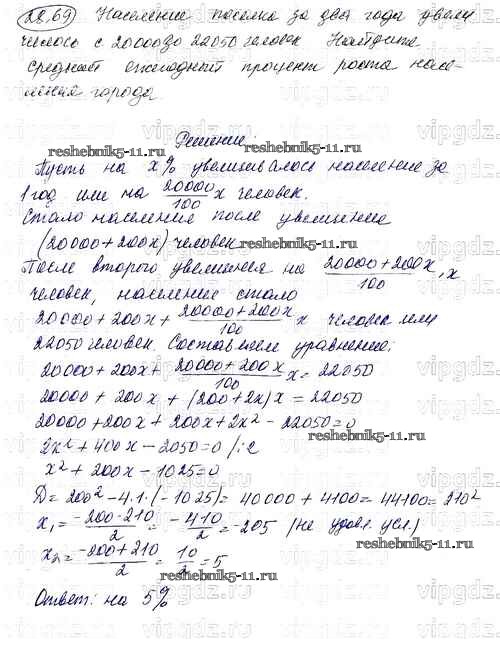 28.69 Население поселка за два года увели
чилось с 20000 до 22050 человек Найдите
средний ежегодный процент роста насе-
ления города
Решение:
reshebnik5-11.ru
Пусть на x% увеличивалось население за
1 год или на 20000/100 x человек.
Стало население после увеличения
(20000+200x) человек
reshebnik5-11.ru
После второго увеличения на 20000+200x/100 · x
человек, население стало
20000+200x+ 20000+200x/100 x человек или
22050 человек. Составляем уравнение:
20000+200x+ 20000+200x/100 x = 22050
20000 + 200x + (200+2x)x = 22050
20000+200x+200x+2x²-22050=0
2x²+400x-2050=0 /:2
reshebnik5-11.ru
x²+200x-1025=0
D=200²-4·1·(-1025)= 40000+4100=44100=210²
x₁= -200-210/2 = -410/2 = -205 (не удовл. усл.)
x₂= -200+210/2 = 10/2 = 5
reshebnik5-11.ru
Ответ: на 5%
vipgdz.ru